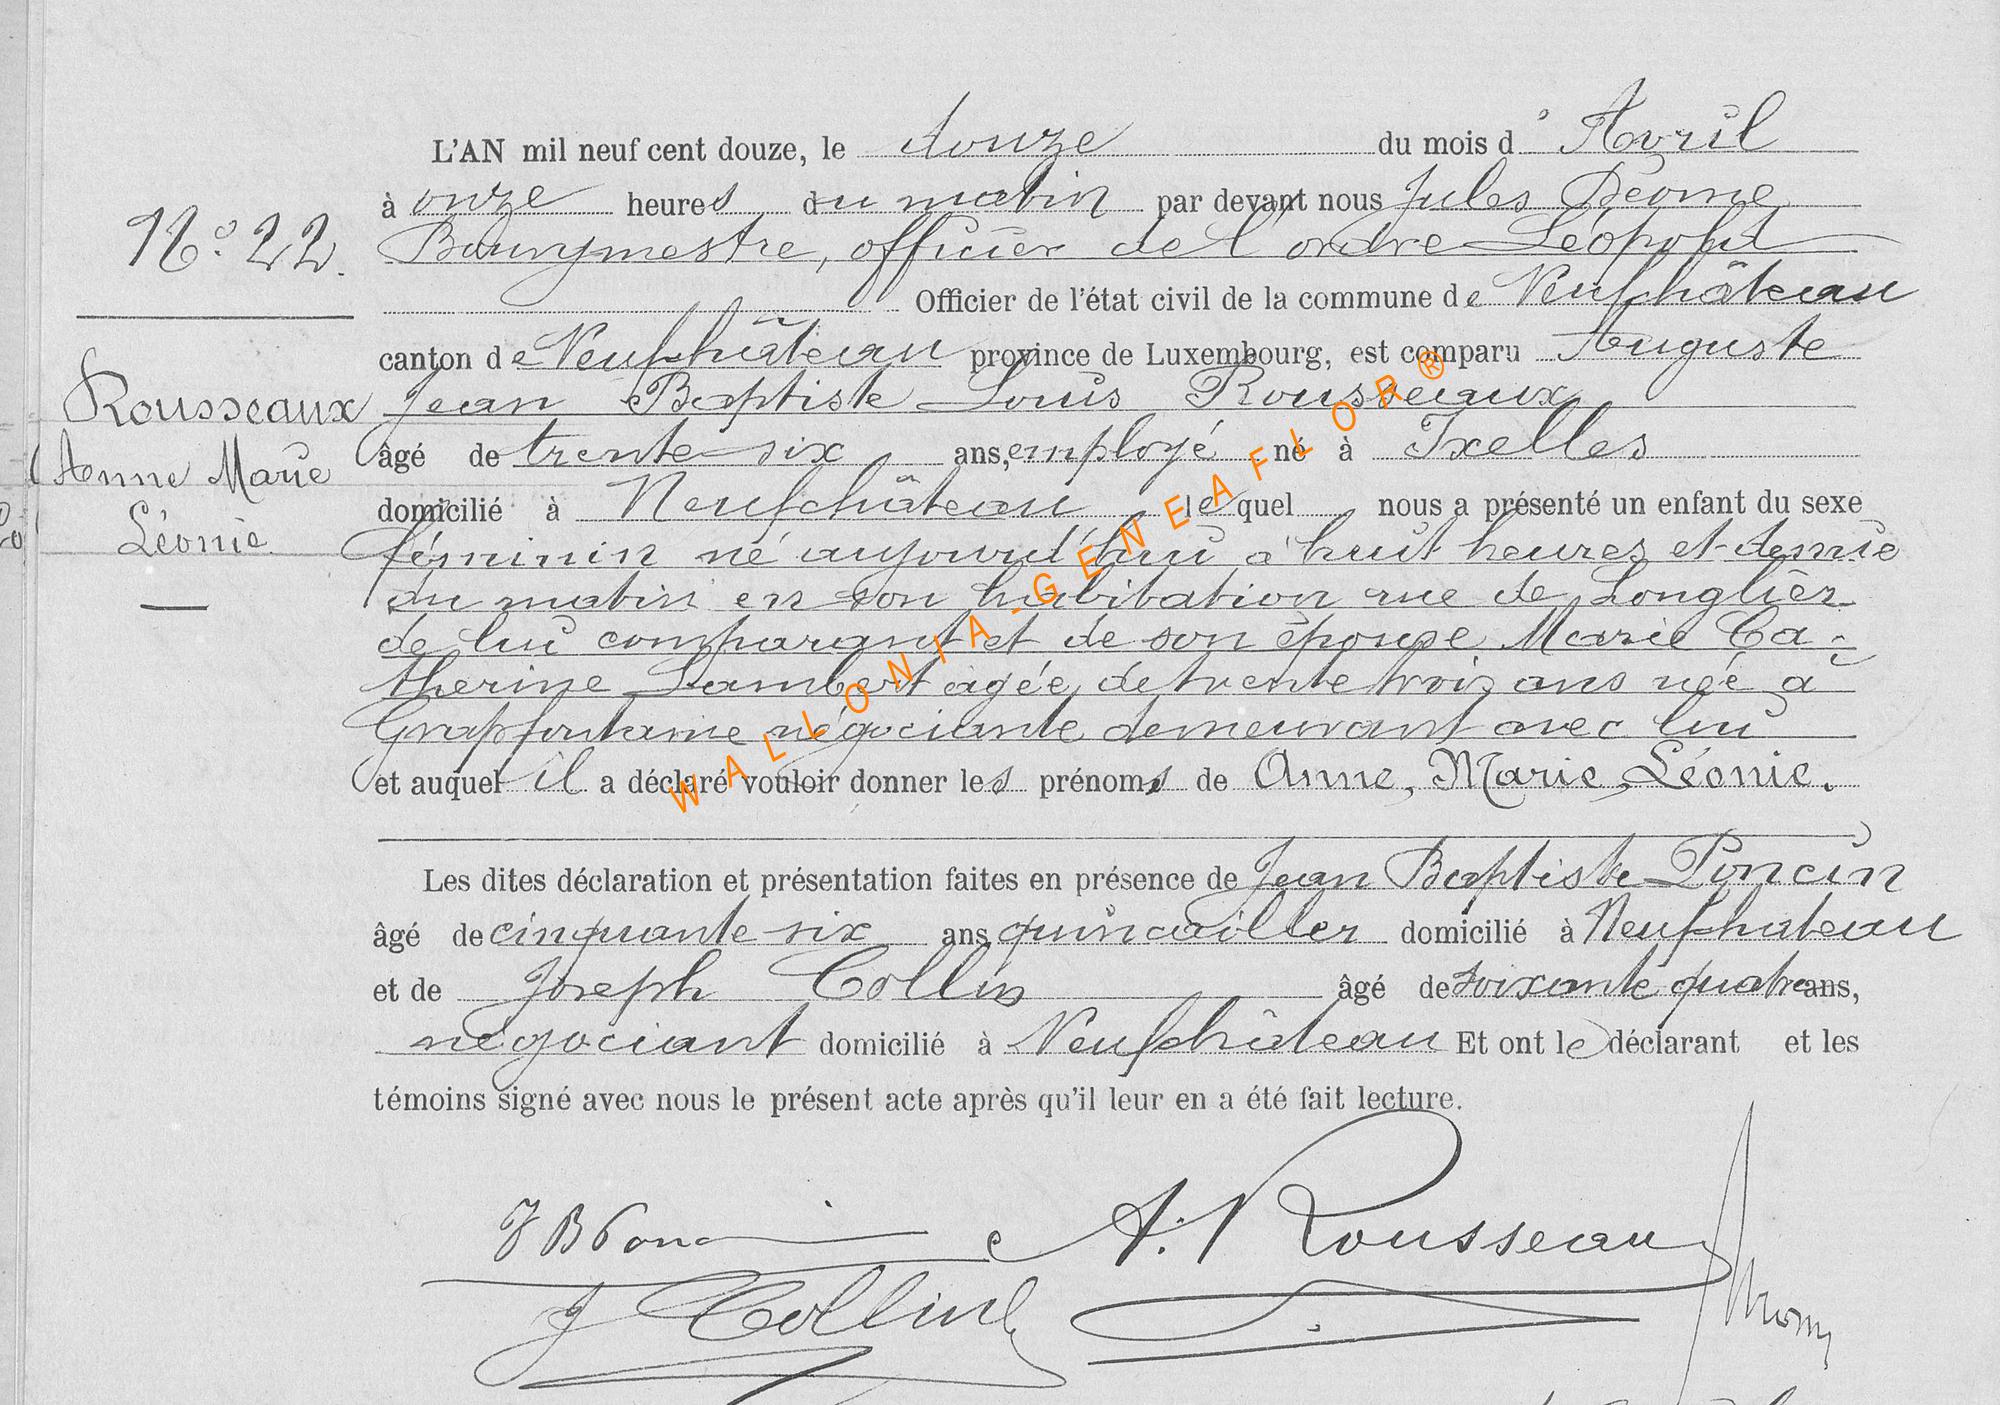 L'AN mil neuf cent douze, le douze du mois d' Avril
à onze heures du matin par devant nous Jules Déome
N° 22.
Bourgmestre, officier de l'ordre Léopold
Officier de l'état civil de la commune de Neufchâteau
canton de Neufchâteau province de Luxembourg, est comparu Auguste
Rousseaux
Jean Baptiste Louis Rousseaux
Anne Marie
âgé de trente-six ans, employé né à Ixelles
Léonie
domicilié à Neufchâteau lequel nous a présenté un enfant du sexe
féminin né aujourd'hui à huit heures et demie
du matin en son habitation rue de Longlier
de lui comparant et de son épouse Marie Ca-
therine Lambert agée de trente trois ans née à
Grapfontaine négociante demeurant avec lui
et auquel il a déclaré vouloir donner les prénoms de Anne, Marie, Léonie.
Les dites déclaration et présentation faites en présence de Jean Baptiste Poncin
âgé de cinquante six ans, quincailler domicilié à Neufchateau
et de Joseph Collin âgé de soixante quatre ans,
négociant domicilié à Neufchâteau Et ont le déclarant et les
témoins signé avec nous le présent acte après qu'il leur en a été fait lecture.
J B Poncin A. Rousseau
J Collin
WALLONIA-GENEAFLOR®